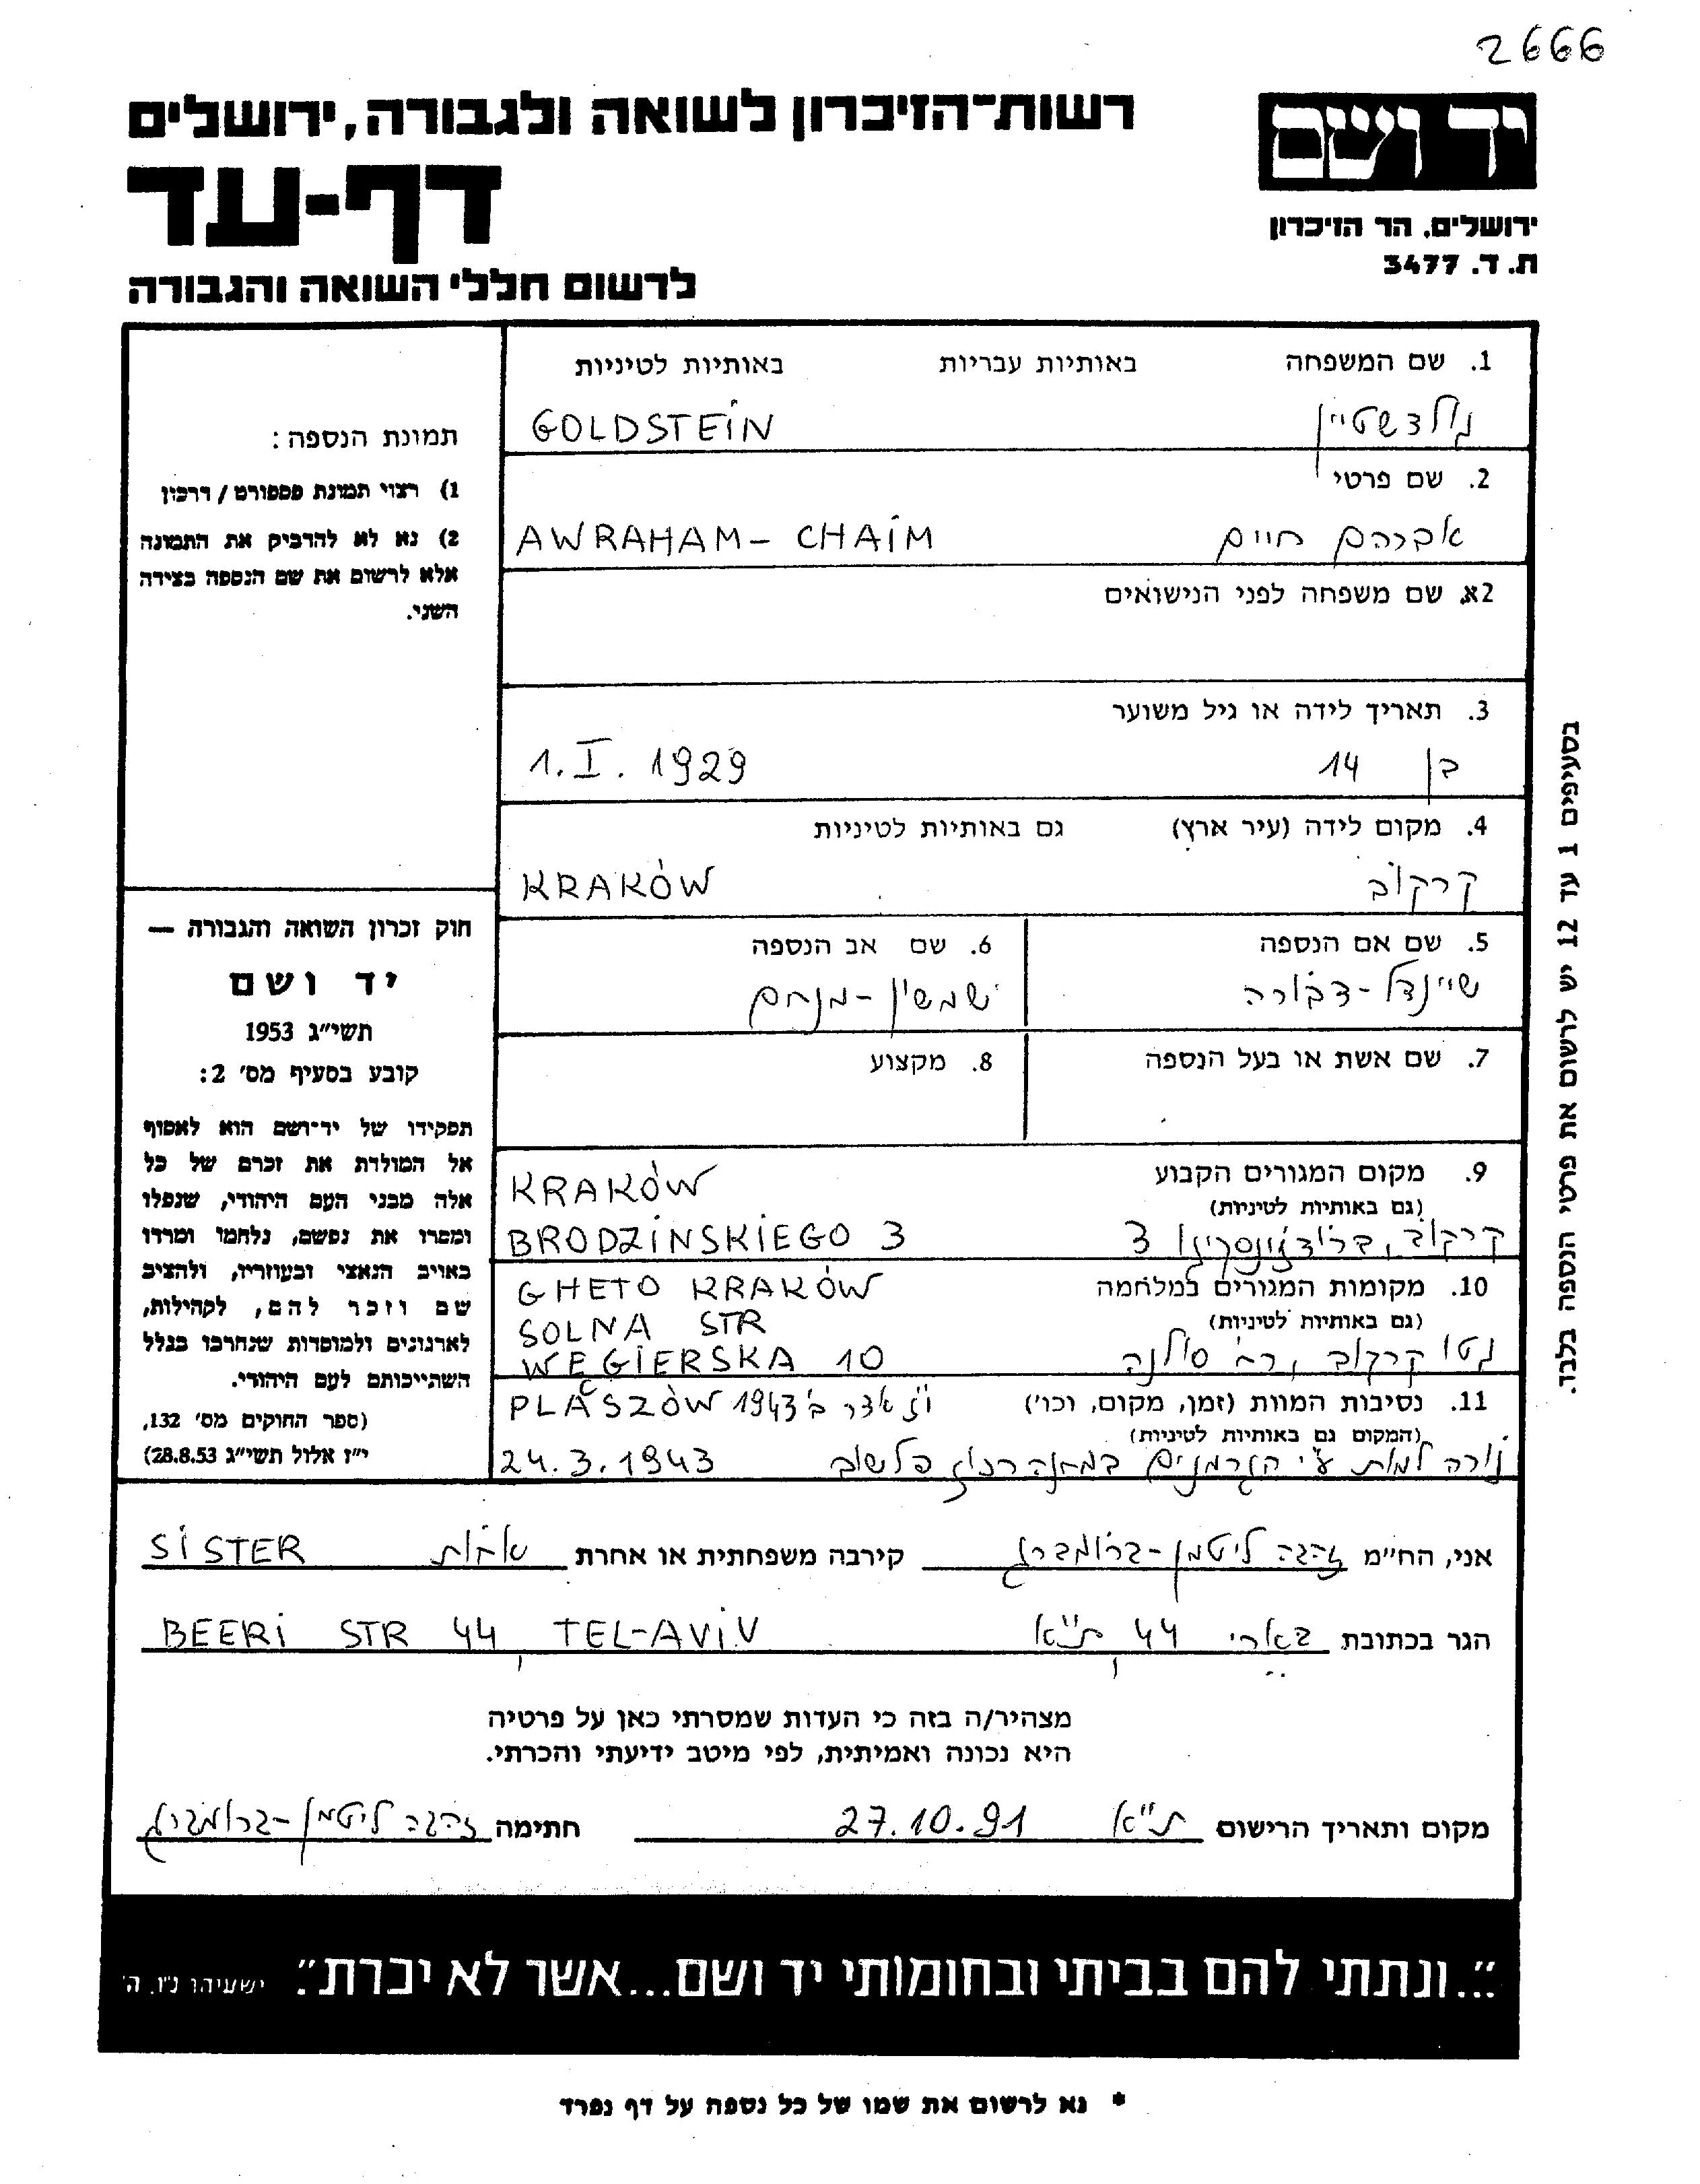 2666
רשות־הזיכרון לשואה ולגבורה, ירושלים
דף-עד
לרשום חללי השואה והגבורה
יד ושם
ירושלים, הר הזיכרון
ת. ד. 3477
1. שם המשפחה באותיות עבריות באותיות לטיניות
גולדשטיין GOLDSTEIN
2. שם פרטי
אברהם חיים AWRAHAM - CHAIM
2א. שם משפחה לפני הנישואים
3. תאריך לידה או גיל משוער
בן 14 1. I. 1929
4. מקום לידה (עיר ארץ) גם באותיות לטיניות
קרקוב KRAKÓW
5. שם אם הנספה
שיינדל-דבורה
6. שם אב הנספה
שמשון-מנחם
7. שם אשת או בעל הנספה
8. מקצוע
9. מקום המגורים הקבוע
(גם באותיות לטיניות)
KRAKÓW
קרקוב, ברודזינסקיגו 3 BRODZINSKIEGO 3
10. מקומות המגורים במלחמה
(גם באותיות לטיניות)
GHETO KRAKÓW
SOLNA STR
גטו קרקוב, רח' סולנה WEGIERSKA 10
11. נסיבות המוות (זמן, מקום, וכו')
(המקום גם באותיות לטיניות)
י"ז אדר ב' 1943 PLASZÓW
נורה למות ע"י הגרמנים במחנה רכוז פלשוב 24.3.1943
תמונת הנספה:
1) רצוי תמונת פספורט / דרכון
2) נא לא להדביק את התמונה
אלא לרשום את שם הנספה בצידה
השני.
חוק זכרון השואה והגבורה —
יד ושם
תשי"ג 1953
קובע בסעיף מס' 2:
תפקידו של יד־ושם הוא לאסוף
אל המולדת את זכרם של כל
אלה מבני העם היהודי, שנפלו
ומסרו את נפשם, נלחמו ומרדו
באויב הנאצי ובעוזריו, ולהציב
שם וזכר להם, לקהילות,
לארגונים ולמוסדות שנחרבו בגלל
השתייכותם לעם היהודי.
(ספר החוקים מס' 132,
י"ז אלול תשי"ג 28.8.53)
בסעיפים 1 עד 12 יש לרשום את פרטי הנספה בלבד.
אני, הח"מ זהבה ליטמן-ברומברג קירבה משפחתית או אחרת אחות SISTER
הגר בכתובת בארי 44 ת"א BEERI STR 44 TEL-AVIV
מצהיר/ה בזה כי העדות שמסרתי כאן על פרטיה
היא נכונה ואמיתית, לפי מיטב ידיעתי והכרתי.
מקום ותאריך הרישום ת"א 27.10.91 חתימה זהבה ליטמן-ברומברג
"...ונתתי להם בביתי ובחומותי יד ושם...אשר לא יכרת". ישעיהו נ"ו, ה'
* נא לרשום את שמו של כל נספה על דף נפרד